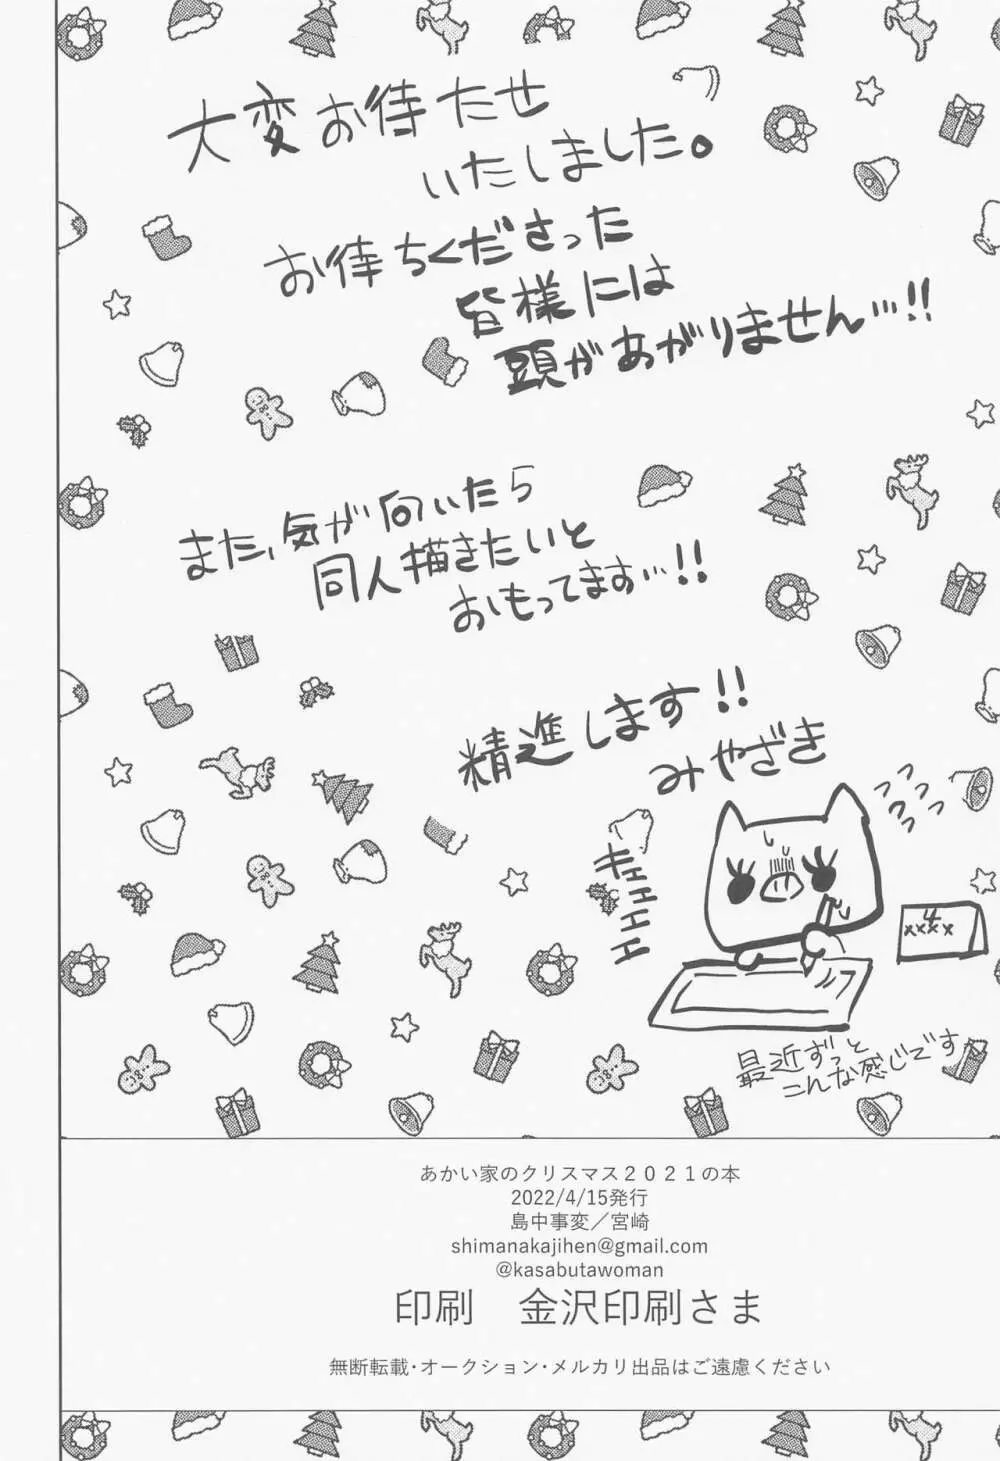 大変お待たせ
いたしました。
お待ちくださった
皆様には
頭があがりません…!!
また、気が向いたら
同人描きたいと
おもってます…!!
精進します!!
みやざき
キェェェェェ
4
××××
最近ずっと
こんな感じです
あかい家のクリスマス2021の本
2022/4/15発行
島中事変／宮崎
shimanakajihen@gmail.com
@kasabutawoman
印刷　金沢印刷さま
無断転載・オークション・メルカリ出品はご遠慮ください